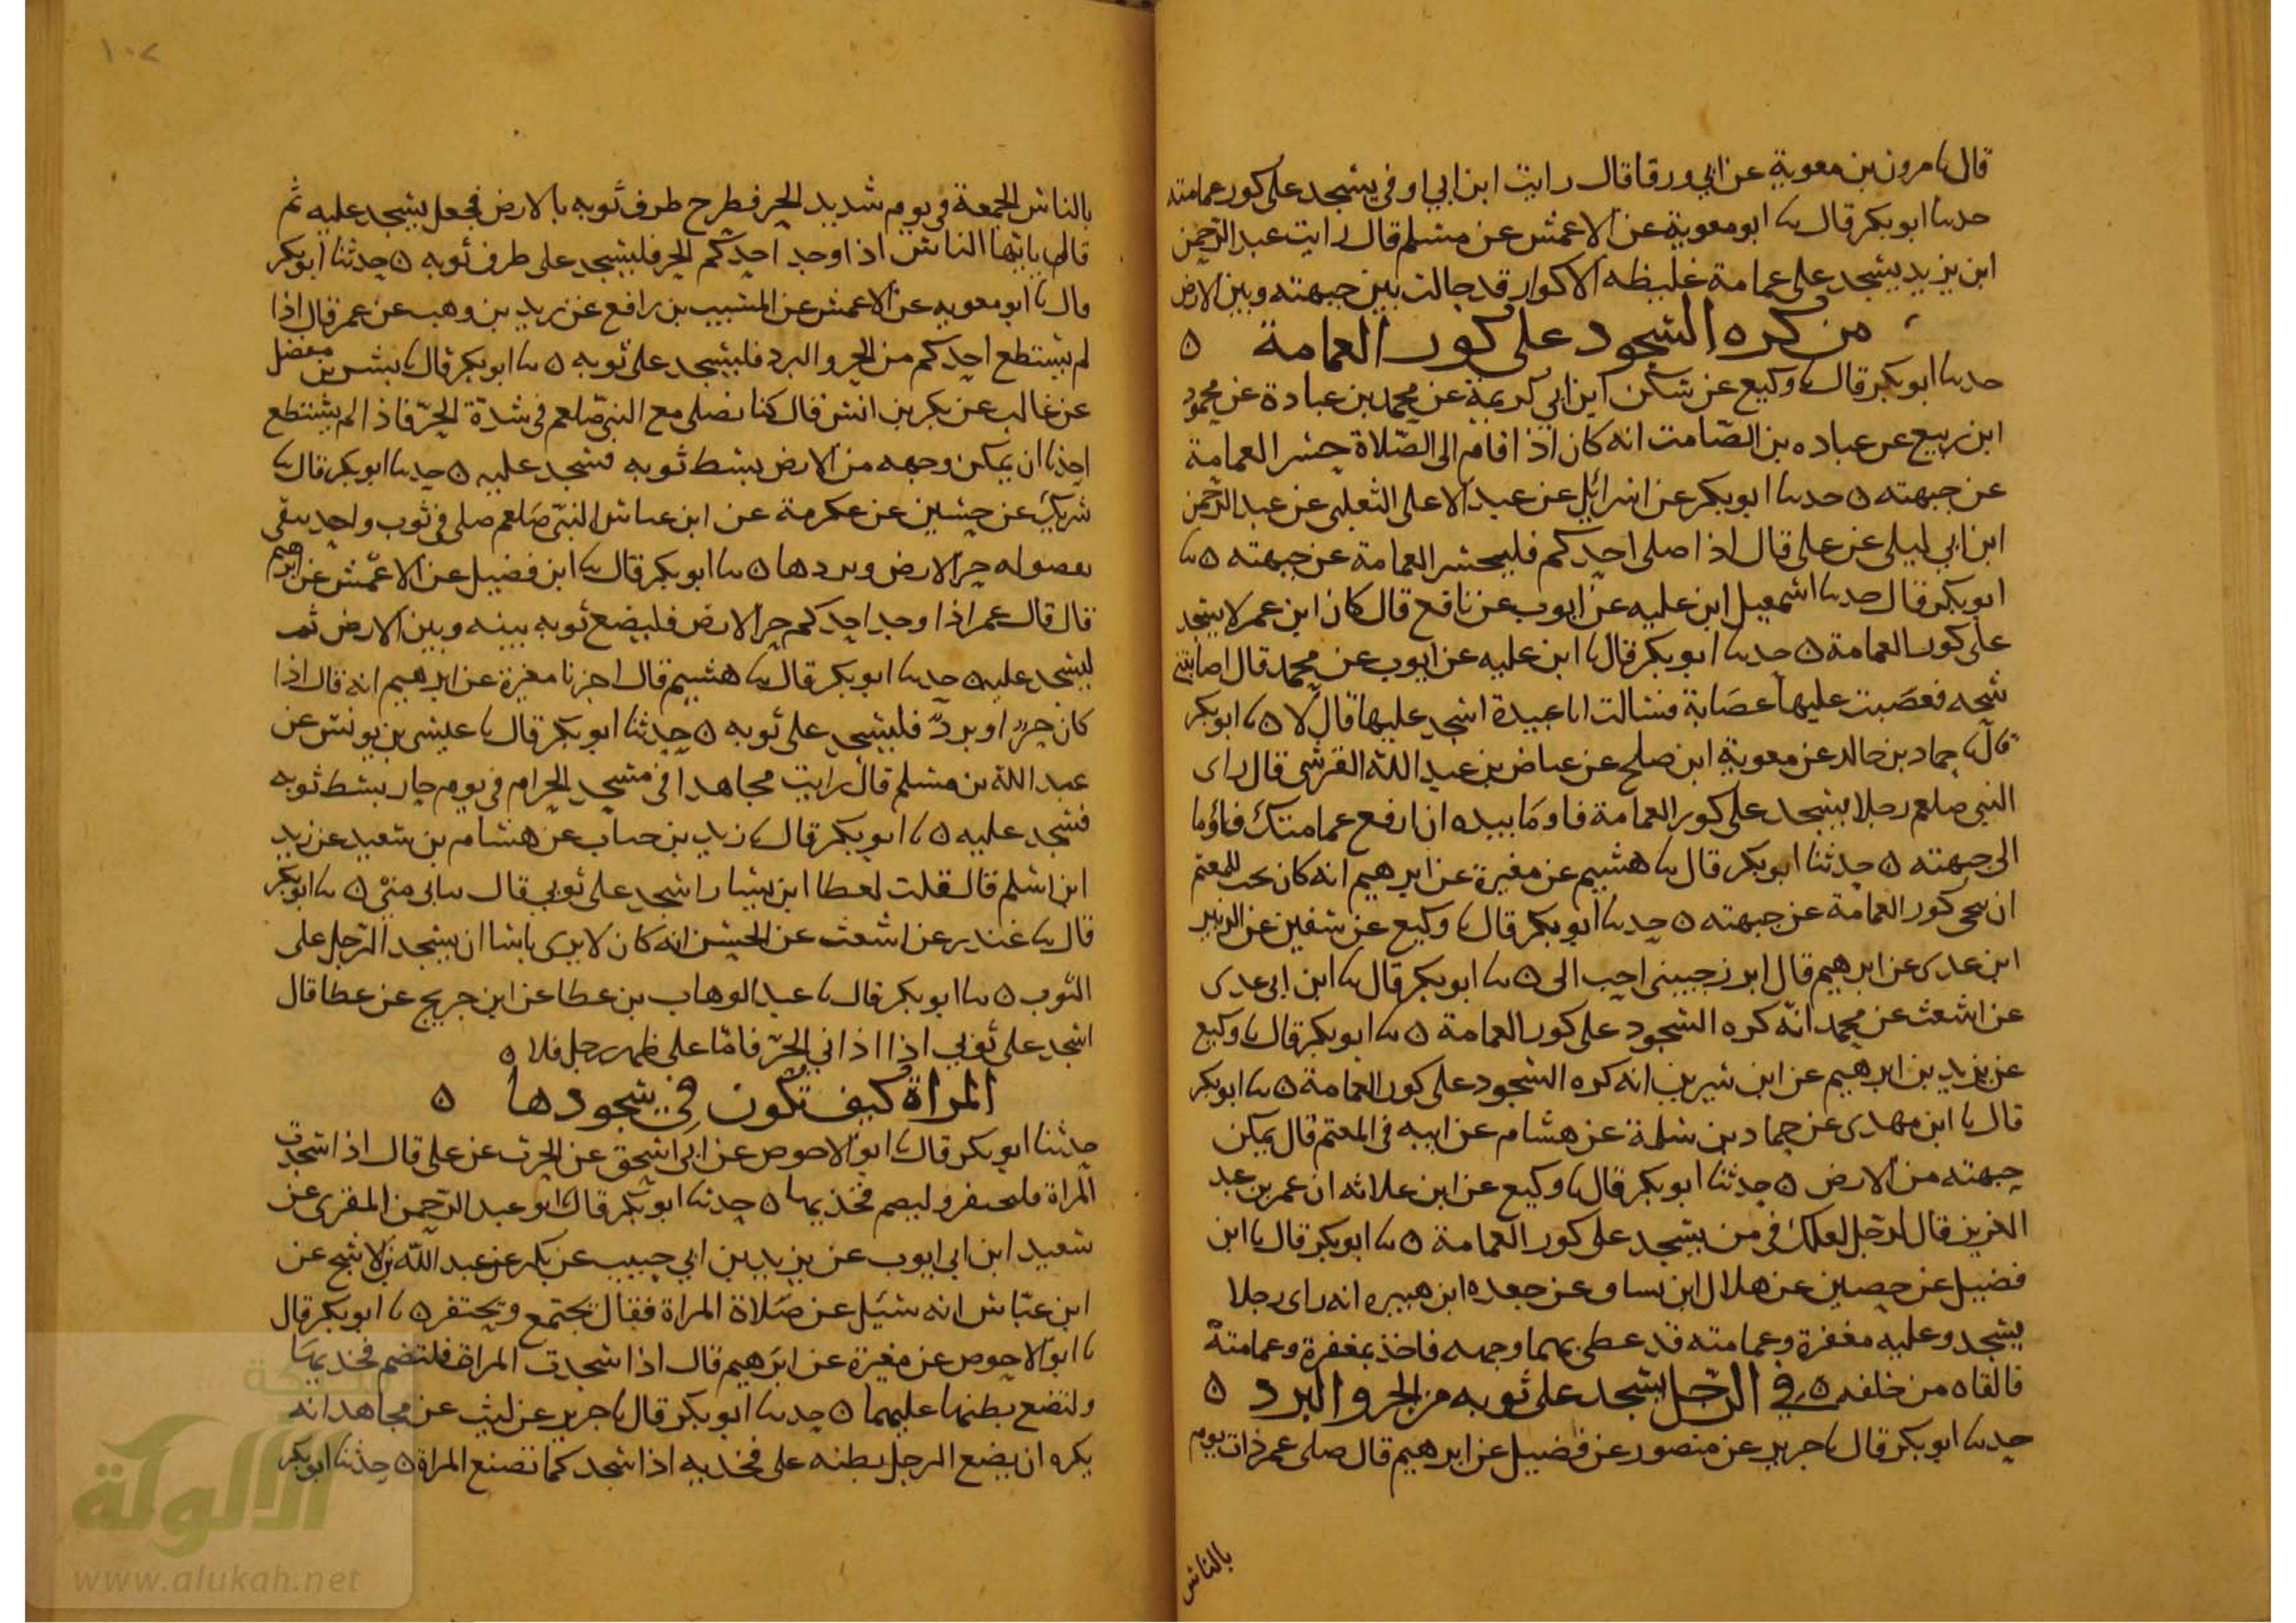 قال ثنا مرون بن معوية عن ابي ورقا قال رايت ابن ابي اوفى يسجد على كور عمامته
حدثنا ابو بكر قال ثنا ابو معوية عن الاعمش عن مسلم قال رايت عبد الرحمن
ابن يزيد يسجد على عمامة غليظه الاكوار قد حالت بين جبهته وبين الارض
من كره السجود على كور العمامة ه
حدثنا ابو بكر قال ثنا وكيع عن سكن ابن ابي كريمة عن محمد بن عبادة عن محمود
ابن ربيع عن عباده بن الصامت انه كان اذا اقام الى الصلاة حسر العمامة
عن جبهته ه حدثنا ابو بكر عن اسرائيل عن عبد الاعلى الثعلبى عن عبد الرحمن
ابن ابي ليلى عن على قال اذا صلى احدكم فليحسر العمامة عن جبهته ه ثنا
ابو بكر قال حدثنا اسمعيل ابن عليه عن ايوب عن نافع قال كان ابن عمر لا يسجد
على كور العمامة ه حدثنا ابو بكر قال ثنا ابن عليه عن ايوب عن محمد قال اصابتنى
شجه فعصبت عليها عصابة فسالت ابا عبيدة اسجد عليها قال لا ه ثنا ابو بكر
قال ثنا حماد بن خالد عن معوية ابن صلح عن عياض بن عبد الله القرشى قال راى
النبى صلعم رجلا يسجد على كور العمامة فاومأ بيده ان ارفع عمامتك فاومأ
الى جبهته ه حدثنا ابو بكر قال ثنا هشيم عن مغيرة عن ابرهيم انه كان يحب للمعتم
ان ينحى كور العمامة عن جبهته ه حدثنا ابو بكر قال ثنا وكيع عن سفين عن الزبير
ابن عدى عن ابرهيم قال ابرز جبينى احب الى ه ثنا ابو بكر قال ثنا ابن ابي عدى
عن اشعث عن محمد انه كره السجود على كور العمامة ه ثنا ابو بكر قال ثنا وكيع
عن يزيد بن ابرهيم عن ابن سيرين انه كره السجود على كور العمامة ه ثنا ابو بكر
قال ثنا ابن مهدى عن حماد بن سلمة عن هشام عن ابيه فى المعتم قال يمكن
جبهته من الارض ه حدثنا ابو بكر قال ثنا وكيع عن ابن علاثه ان عمر بن عبد
العزيز قال لرجل لعلك فى من يسجد على كور العمامة ه ثنا ابو بكر قال ثنا ابن
فضيل عن حصين عن هلال ابن يساف عن جعده ابن هبيره انه راى رجلا
يسجد وعليه مغفرة وعمامته قد غطى بهما وجهه فاخذ بمغفرة وعمامتة
فالقاه من خلفه ه في الرجل يسجد على ثوبه من الحر والبرد ه
حدثنا ابو بكر قال ثنا جرير عن منصور عن فضيل عن ابرهيم قال صلى عمر ذات يوم
بالناس
١٠٧
بالناس الجمعة فى يوم شديد الحر فطرح طرف ثوبه بالارض فجعل يسجد عليه ثم
قال يا ايها الناس اذا وجد احدكم الحر فليسجد على طرف ثوبه ه حدثنا ابو بكر
قال ثنا ابو معويه عن الاعمش عن المسيب بن رافع عن زيد بن وهب عن عمر قال اذا
لم يستطع احدكم من الحر والبرد فليسجد على ثوبه ه ثنا ابو بكر قال ثنا بشر بن مفضل
عن غالب عن بكر بن انس قال كنا نصلى مع النبى صلعم فى شدة الحر فاذا لم يستطع
احدنا ان يمكن وجهه من الارض بسط ثوبه فسجد عليه ه حدثنا ابو بكر قال ثنا
شريك عن حسين عن عكرمة عن ابن عباس النبى صلعم صلى فى ثوب واحد يتقى
بفضوله حر الارض وبردها ه ثنا ابو بكر قال ثنا ابن فضيل عن الاعمش عن ابرهيم
قال قال عمر اذا وجد احدكم حر الارض فليضع ثوبه بينه وبين الارض ثم
ليسجد عليه ه حدثنا ابو بكر قال ثنا هشيم قال اخبرنا مغيرة عن ابرهيم انه قال اذا
كان حر او برد فليسجد على ثوبه ه حدثنا ابو بكر قال ثنا عيسى بن يونس عن
عبد الله بن مسلم قال رايت مجاهدا فى مسجد الحرام فى يوم حار بسط ثوبه
فسجد عليه ه ثنا ابو بكر قال ثنا زيد بن حباب عن هشام بن سعيد عن زيد
ابن اسلم قال قلت لعطا ابن يسار اسجد على ثوبي قال ثيابى منى ه ثنا ابو بكر
قال ثنا غندر عن اشعث عن الحسن انه كان لا يرى باسا ان يسجد الرجل على
الثوب ه ثنا ابو بكر قال ثنا عبد الوهاب بن عطا عن ابن جريج عن عطا قال
اسجد على ثوبي اذا اذاني الحر فاما على ظهر رجل فلا ه
المراة كيف تكون في سجودها ه
حدثنا ابو بكر قال ثنا ابو الاحوص عن ابي اسحق عن الحرث عن على قال اذا سجدت
المراة فلتحتفر ولتضم فخذيها ه حدثنا ابو بكر قال ثنا ابو عبد الرحمن المقرى عن
سعيد ابن ابي ايوب عن يزيد بن ابي حبيب عن بكر عن عبد الله بن الاشج عن
ابن عباس انه سئل عن صلاة المراة فقال تجتمع وتحتفر ه ثنا ابو بكر قال
ثنا ابو الاحوص عن مغيرة عن ابرهيم قال اذا سجدت المراة فلتضم فخذيها
ولتضع بطنها عليهما ه حدثنا ابو بكر قال ثنا جرير عن ليث عن مجاهد انه
يكره ان يضع الرجل بطنه على فخذيه اذا سجد كما تصنع المراة ه حدثنا ابو بكر
الألوكة
www.alukah.net